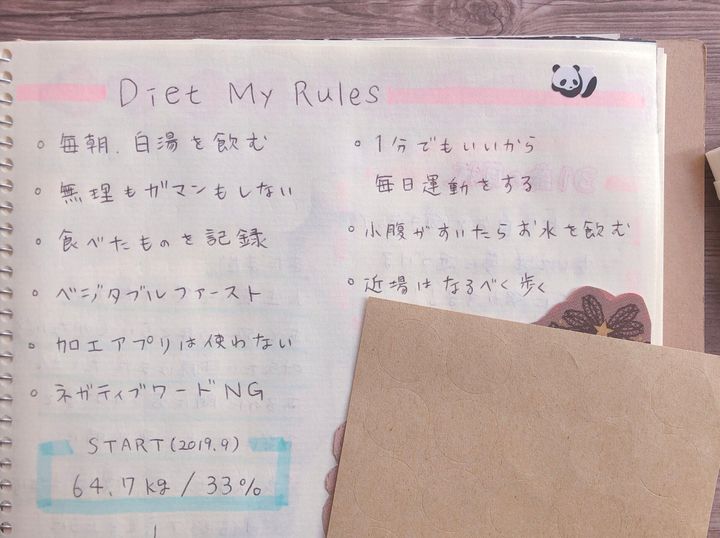 Diet My Rules
○ 毎朝、白湯を飲む
○ 無理もガマンもしない
○ 食べたものを記録
○ ベジタブルファースト
○ 加工アプリは使わない
○ ネガティブワードNG
START(2019.9)
64.7kg / 33%
○ 1分でもいいから
毎日運動をする
○ 小腹がすいたらお水を飲む
○ 近場はなるべく歩く